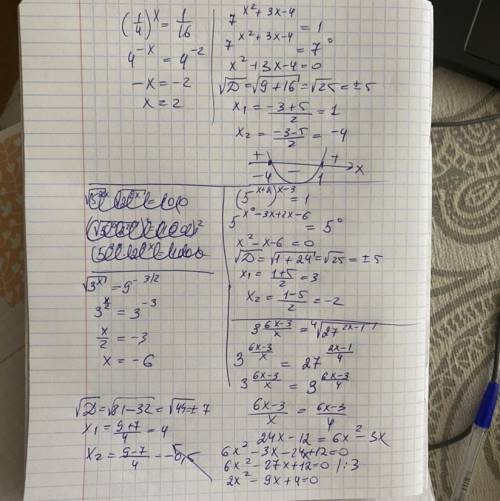 (1/4)^x = 1/16
4^-x = 4^-2
-x = -2
x = 2
7^x²+3x-4 = 1
7^x²+3x-4 = 7°
x²+3x-4=0
√D=√9+16=√25=±5
x₁=-3+5/2=1
x₂=-3-5/2=-4
+ - +
-4 1 x
√3^x=9^-3/2
3^x/2=3^-3
x/2=-3
x=-6
(5^x+2)^x-3=1
5^x²-3x+2x-6=5°
x²-x-6=0
√D=√1+24=√25=±5
x₁=1+5/2=3
x₂=1-5/2=-2
3^6x-3/x=⁴√27^2x-1
3^6x-3/x=27^2x-1/4
3^6x-3/x=3^6x-3/4
6x-3/x=6x-3/4
24x-12=6x²-3x
6x²-3x-24x+12=0
6x²-27x+12=0 |:3
2x²-9x+4=0
√D=√81-32=√49=±7
x₁=9+7/4=4
x₂=9-7/4=